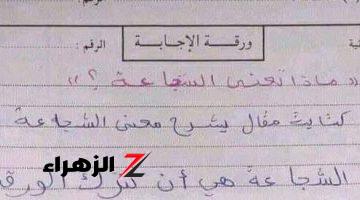 ورقة الإجابة
الرقم :
« ماذا تعني الشجاعة ؟ »
كتابة مقال يشرح معنى الشجاعة
الزهراء
الشجاعة هي أن تترك الورق